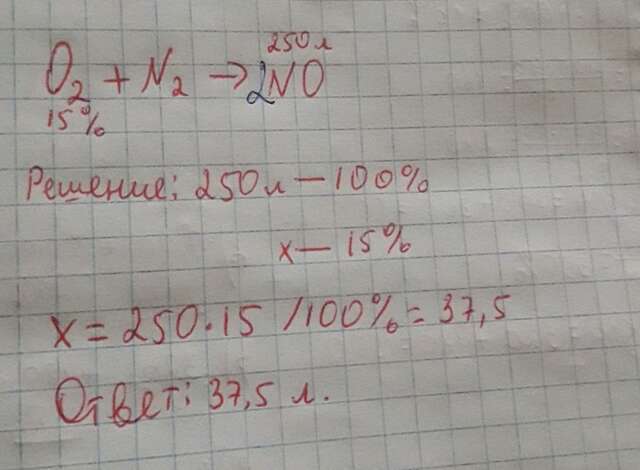 250 л
O₂ + N₂ → 2NO
15%
Решение: 250 л — 100%
x — 15%
x = 250 · 15 / 100% = 37,5
Ответ: 37,5 л.